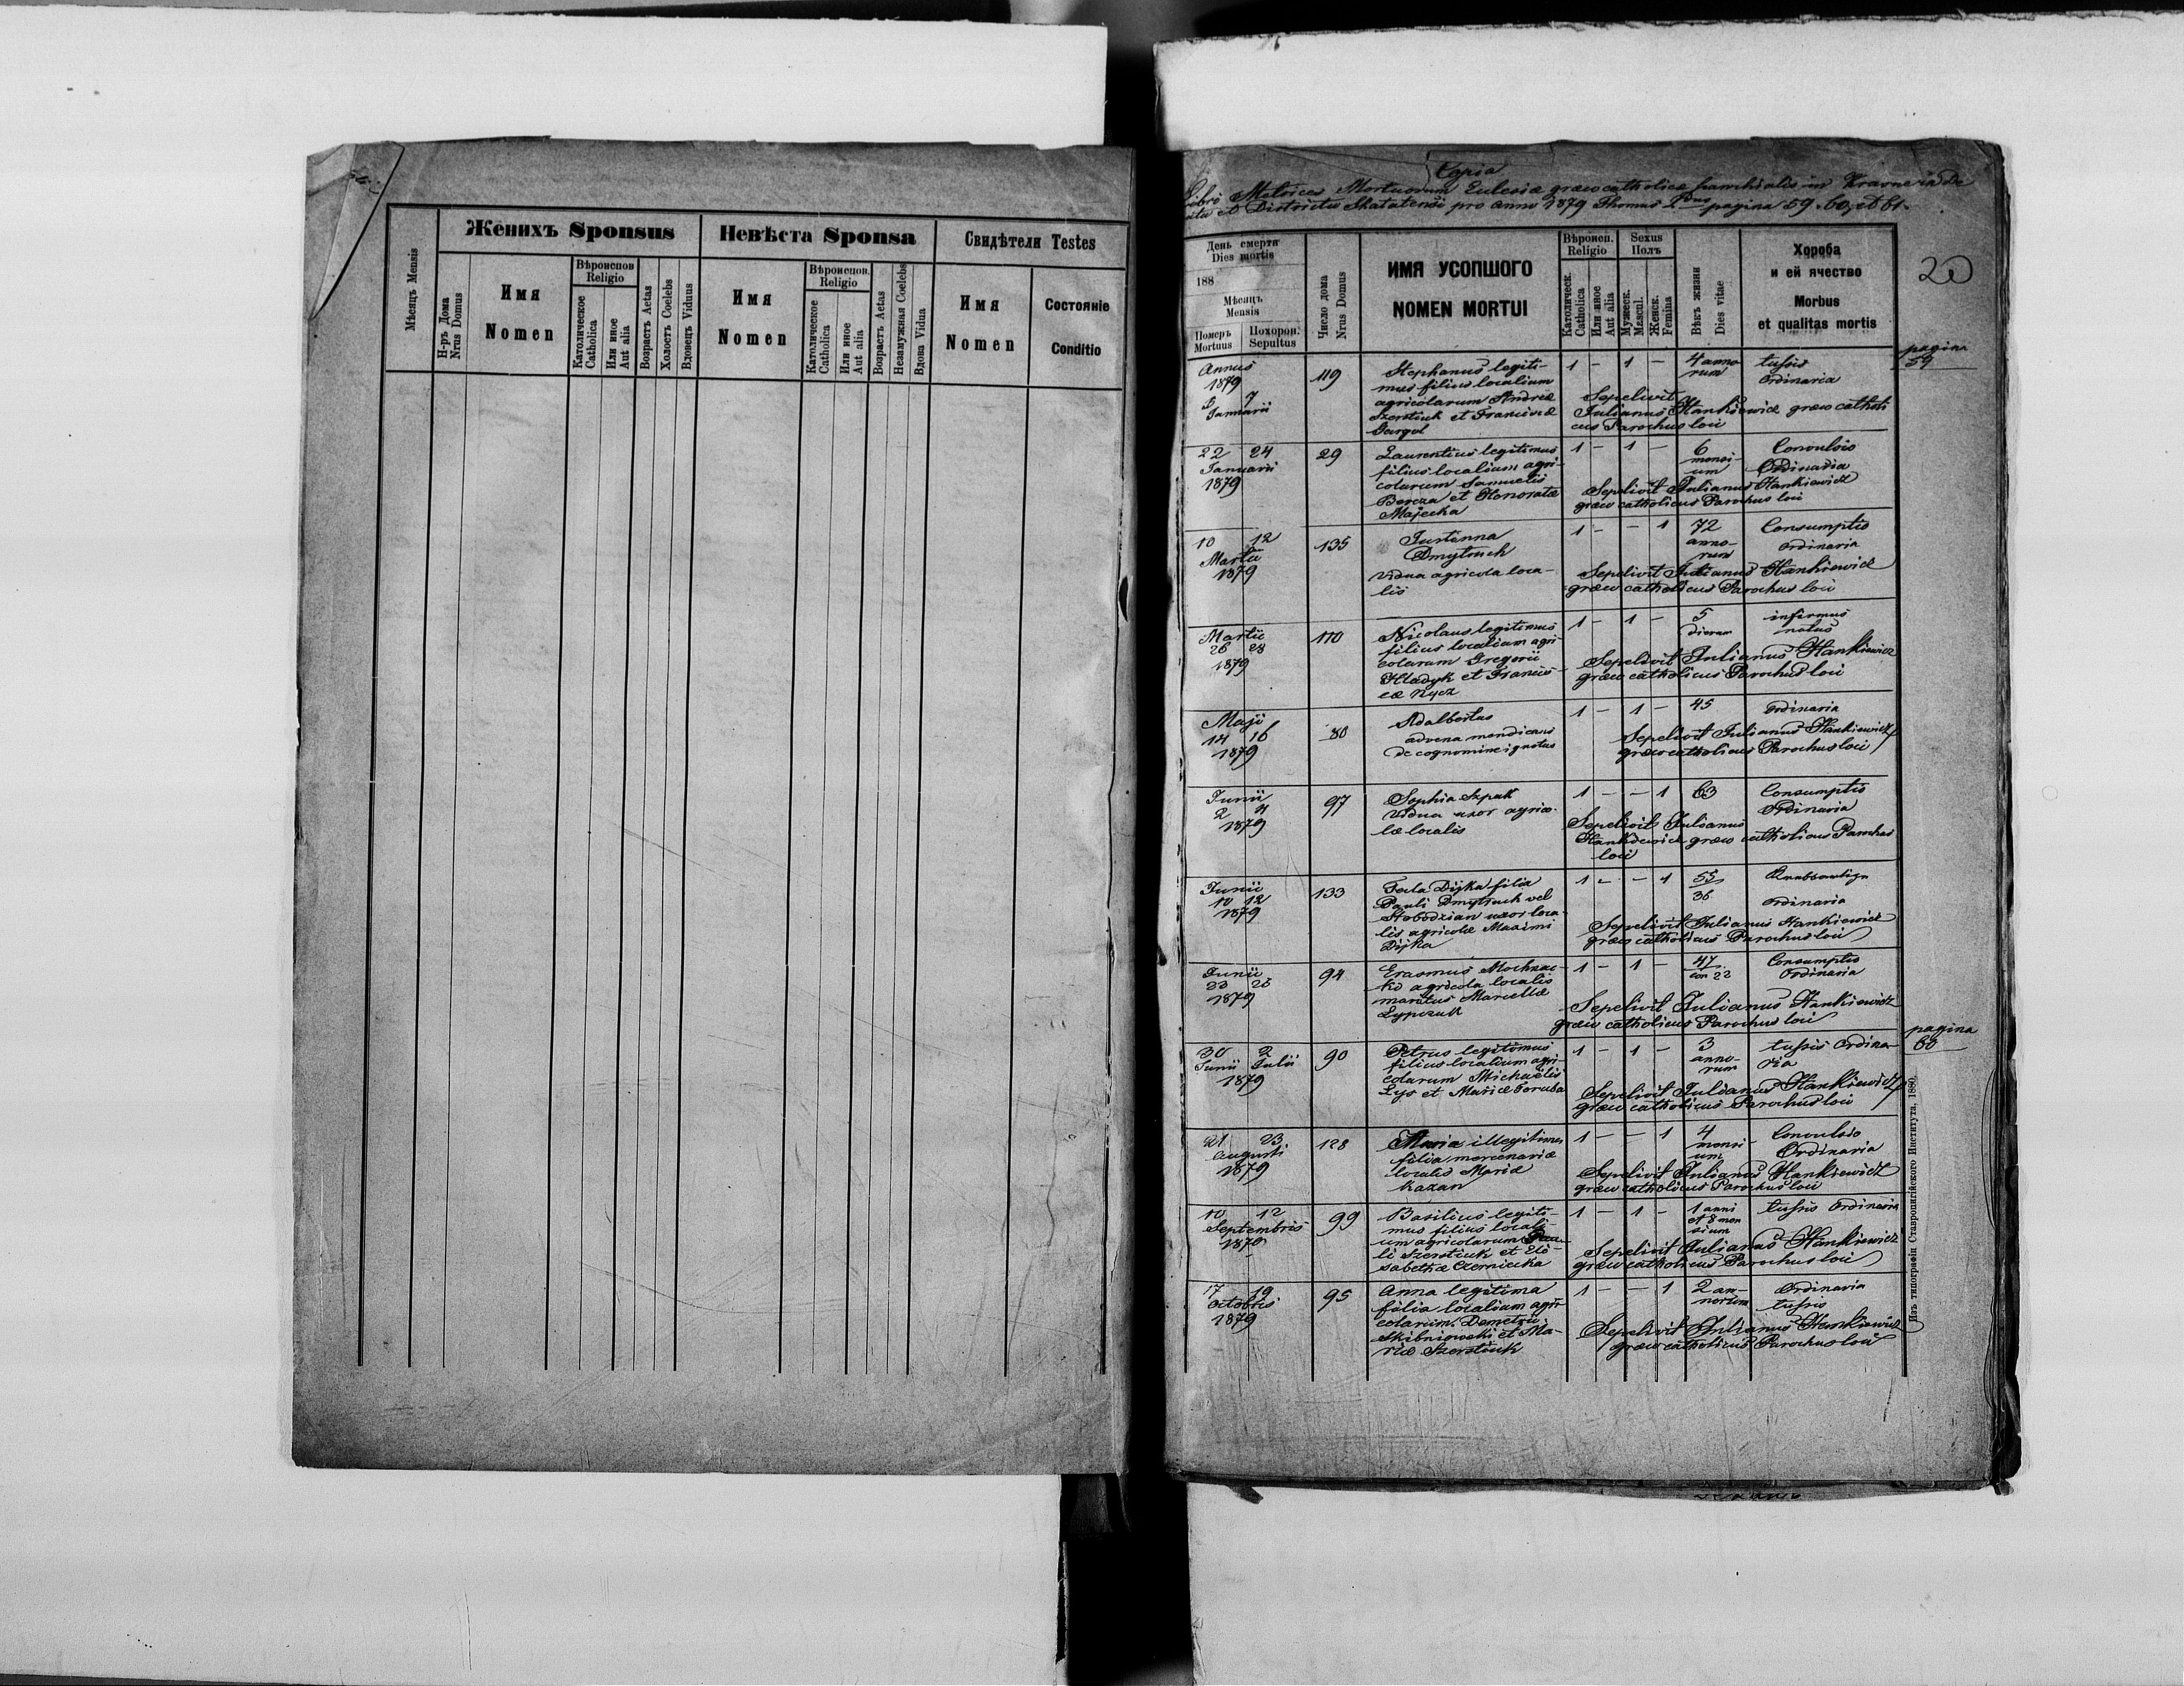 Женихъ Sponsus
Невѣста Sponsa
Свидѣтели Testes
Мѣсяцъ Mensis
Н-ръ Дома
Nrus Domus
Имя
Nomen
Вѣроиспов
Religio
Католическое
Catholica
Или иное
Aut alia
Возрастъ Aetas
Холостъ Coelebs
Вдовецъ Viduus
Имя
Nomen
Вѣроиспов.
Religio
Католическое
Catholica
Или иное
Aut alia
Возрастъ Aetas
Незамужная Coelebs
Вдова Vidua
Имя
Nomen
Состояніе
Conditio
Copia
Libri Metrices Mortuorum Eclesiæ græco catholicæ parochialis in
et Districtu Skalatensi pro anno 1879 Thomus pagina 59. 60. et 61.
20
День смерти
Dies mortis
188
Мѣсяцъ
Mensis
Номеръ
Mortuus
Похорон.
Sepultus
Число дома
Nrus Domus
ИМЯ УСОПШОГО
NOMEN MORTUI
Вѣроисп.
Religio
Католическ.
Catholica
Или иное
Aut alia
Sexus
Полъ
Мужеск.
Mascul.
Женск.
Femina
Вѣкъ жизни
Dies vitae
Хороба
и ей ячество
Morbus
et qualitas mortis
pagina
59
Annus
1879
5 7
Januarii
119
Stephanus legiti-
mus filius localium
agricolarum Andreæ
Szerstiuk et Franciscæ
Gargol
1 - 1 -
4 anno
rum
tussis
Ordinaria
Sepelivit
Julianus Hankiewicz græco catholi
cus Parochus loci
22 24
Januarii
1879
29
Laurentius legitimus
filius localium agri-
colarum Samuelis
Bereza et Honoratæ
Majecka
1 - 1 -
6
mensi-
um
Convulsio
Ordinaria
Sepelivit Julianus Hankiewicz
græco catholicus Parochus loci
10 12
Martii
1879
135
Justanna
Dmytruch
vidua agricola loca-
lis
1 - - 1
72
anno-
rum
Consumptio
ordinaria
Sepelivit Julianus Hankiewicz
græco catholicus Parochus loci
Martii
26 28
1879
110
Nicolaus legitimus
filius localium agri-
colarum Gregorii
Hladyk et Francis-
cæ Kycz
1 - 1 -
5
dierum
infirmus
natus
Sepelivit Julianus Hankiewicz
græco catholicus Parochus loci
Maji
14 16
1879
80
Adalbertus
advena mendicans
de cognomine ignotus
1 - 1 -
45
Ordinaria
Sepelivit Julianus Hankiewicz
græco catholicus Parochus loci
Junii
2 4
1879
97
Sophia Szpak
Vidua uxor agrico-
læ localis
1 - - 1
63
Consumptio
Ordinaria
Sepelivit Julianus
Hankiewicz græco catholicus Parochus
loci
Junii
10 12
1879
133
Tecla Dijka filia
Pauli Dmytruch vel
Slobodzian uxor loca-
lis agricolæ Maximi
Dijka
1 - - 1
55
36
ordinaria
Sepelivit Julianus Hankiewicz
græco catholicus Parochus loci
Junii
23 25
1879
94
Erasmus Mochnac-
ki agricola localis
maritus Marcellæ
Lypczuk
1 - 1 -
47
con 22
Consumptio
Ordinaria
Sepelivit Julianus Hankiewicz
græco catholicus Parochus loci
pagina
60
30 2
Junii Julii
1879
90
Petrus legitimus
filius localium agri-
colarum Michaelis
Lys et Mariæ Poruba
1 - 1 -
3
anno-
rum
tussis Ordina-
ria
Sepelivit Julianus Hankiewicz
græco catholicus Parochus loci
21 23
Augusti
1879
128
Maria illegitima
filia mercenariæ
localis Mariæ
Kazan
1 - - 1
4
mensi-
um
Convulsio
Ordinaria
Sepelivit Julianus Hankiewicz
græco catholicus Parochus loci
10 12
Septembris
1879
99
Basilius legiti-
mus filius locali-
um agricolarum Pau-
li Szerstiuk et Eli-
sabethæ Czerniecka
1 - 1 -
1 anni
et 8 men
sium
tussis Ordinaria
Sepelivit Julianus Hankiewicz
græco catholicus Parochus loci
17 19
Octobris
1879
95
Anna legitima
filia localium agri-
colarum Demetrii
Skibniewski et Ma-
riæ Szerstiuk
1 - - 1
2 an-
norum
Ordinaria
tussis
Sepelivit Julianus Hankiewicz
græco catholicus Parochus loci
Изъ типографіи Ставропигійского Института, 1880.